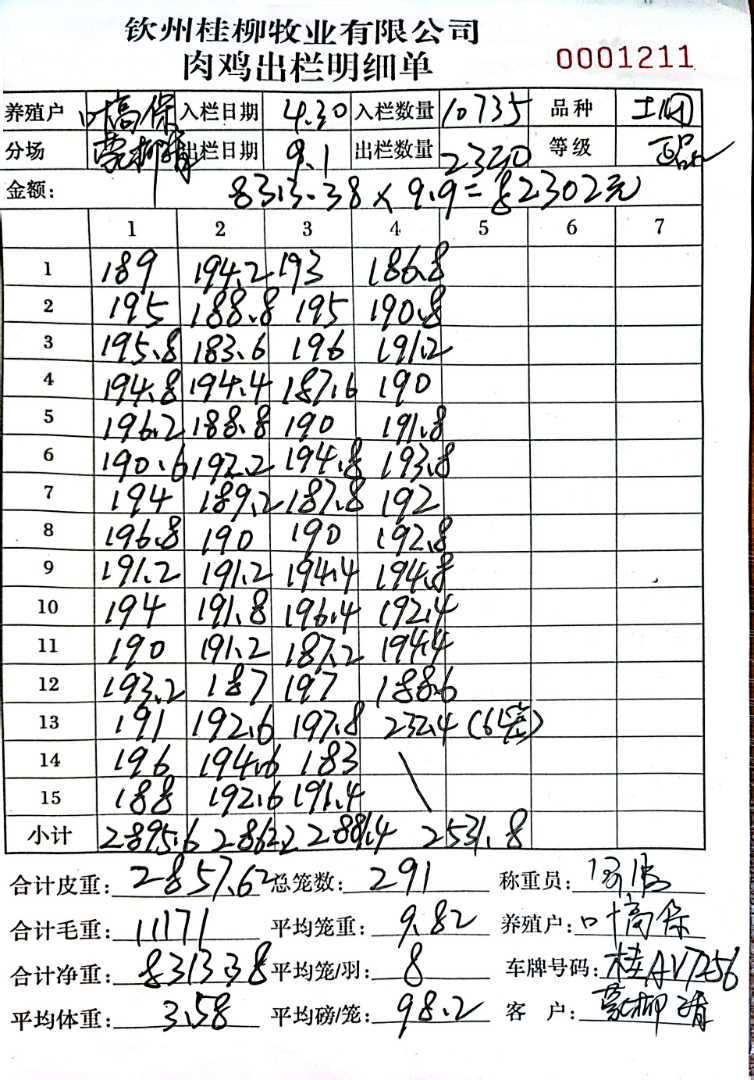 钦州桂柳牧业有限公司
肉鸡出栏明细单 0001211
养殖户 叶高保 入栏日期 4.30 入栏数量 10735 品种 土
分场 蒙柳清 出栏日期 9.1 出栏数量 2320 等级
金额: 8313.38 × 9.9 = 82302元
1 2 3 4 5 6 7
1 189 194.2 193 186.8
2 195 188.8 195 190.8
3 195.8 183.6 196 191.2
4 194.8 194.4 187.6 190
5 196.2 188.8 190 191.8
6 190.6 192.2 194.8 193.8
7 194 189.2 187.8 192
8 196.8 190 190 192.8
9 191.2 191.2 194.4 194.8
10 194 191.8 196.4 192.4
11 190 191.2 187.2 194.4
12 193.2 187 197 188.6
13 191 192.6 197.8 232.4 (6笼)
14 196 194.6 183 \
15 188 192.6 191.4
小计 2895.6 2862.2 2881.4 2531.8
合计皮重: 2857.62 总笼数: 291 称重员:
合计毛重: 11171 平均笼重: 9.82 养殖户: 叶高保
合计净重: 8313.38 平均笼/羽: 8 车牌号码: 桂AV7256
平均体重: 3.58 平均磅/笼: 98.2 客 户: 蒙柳清